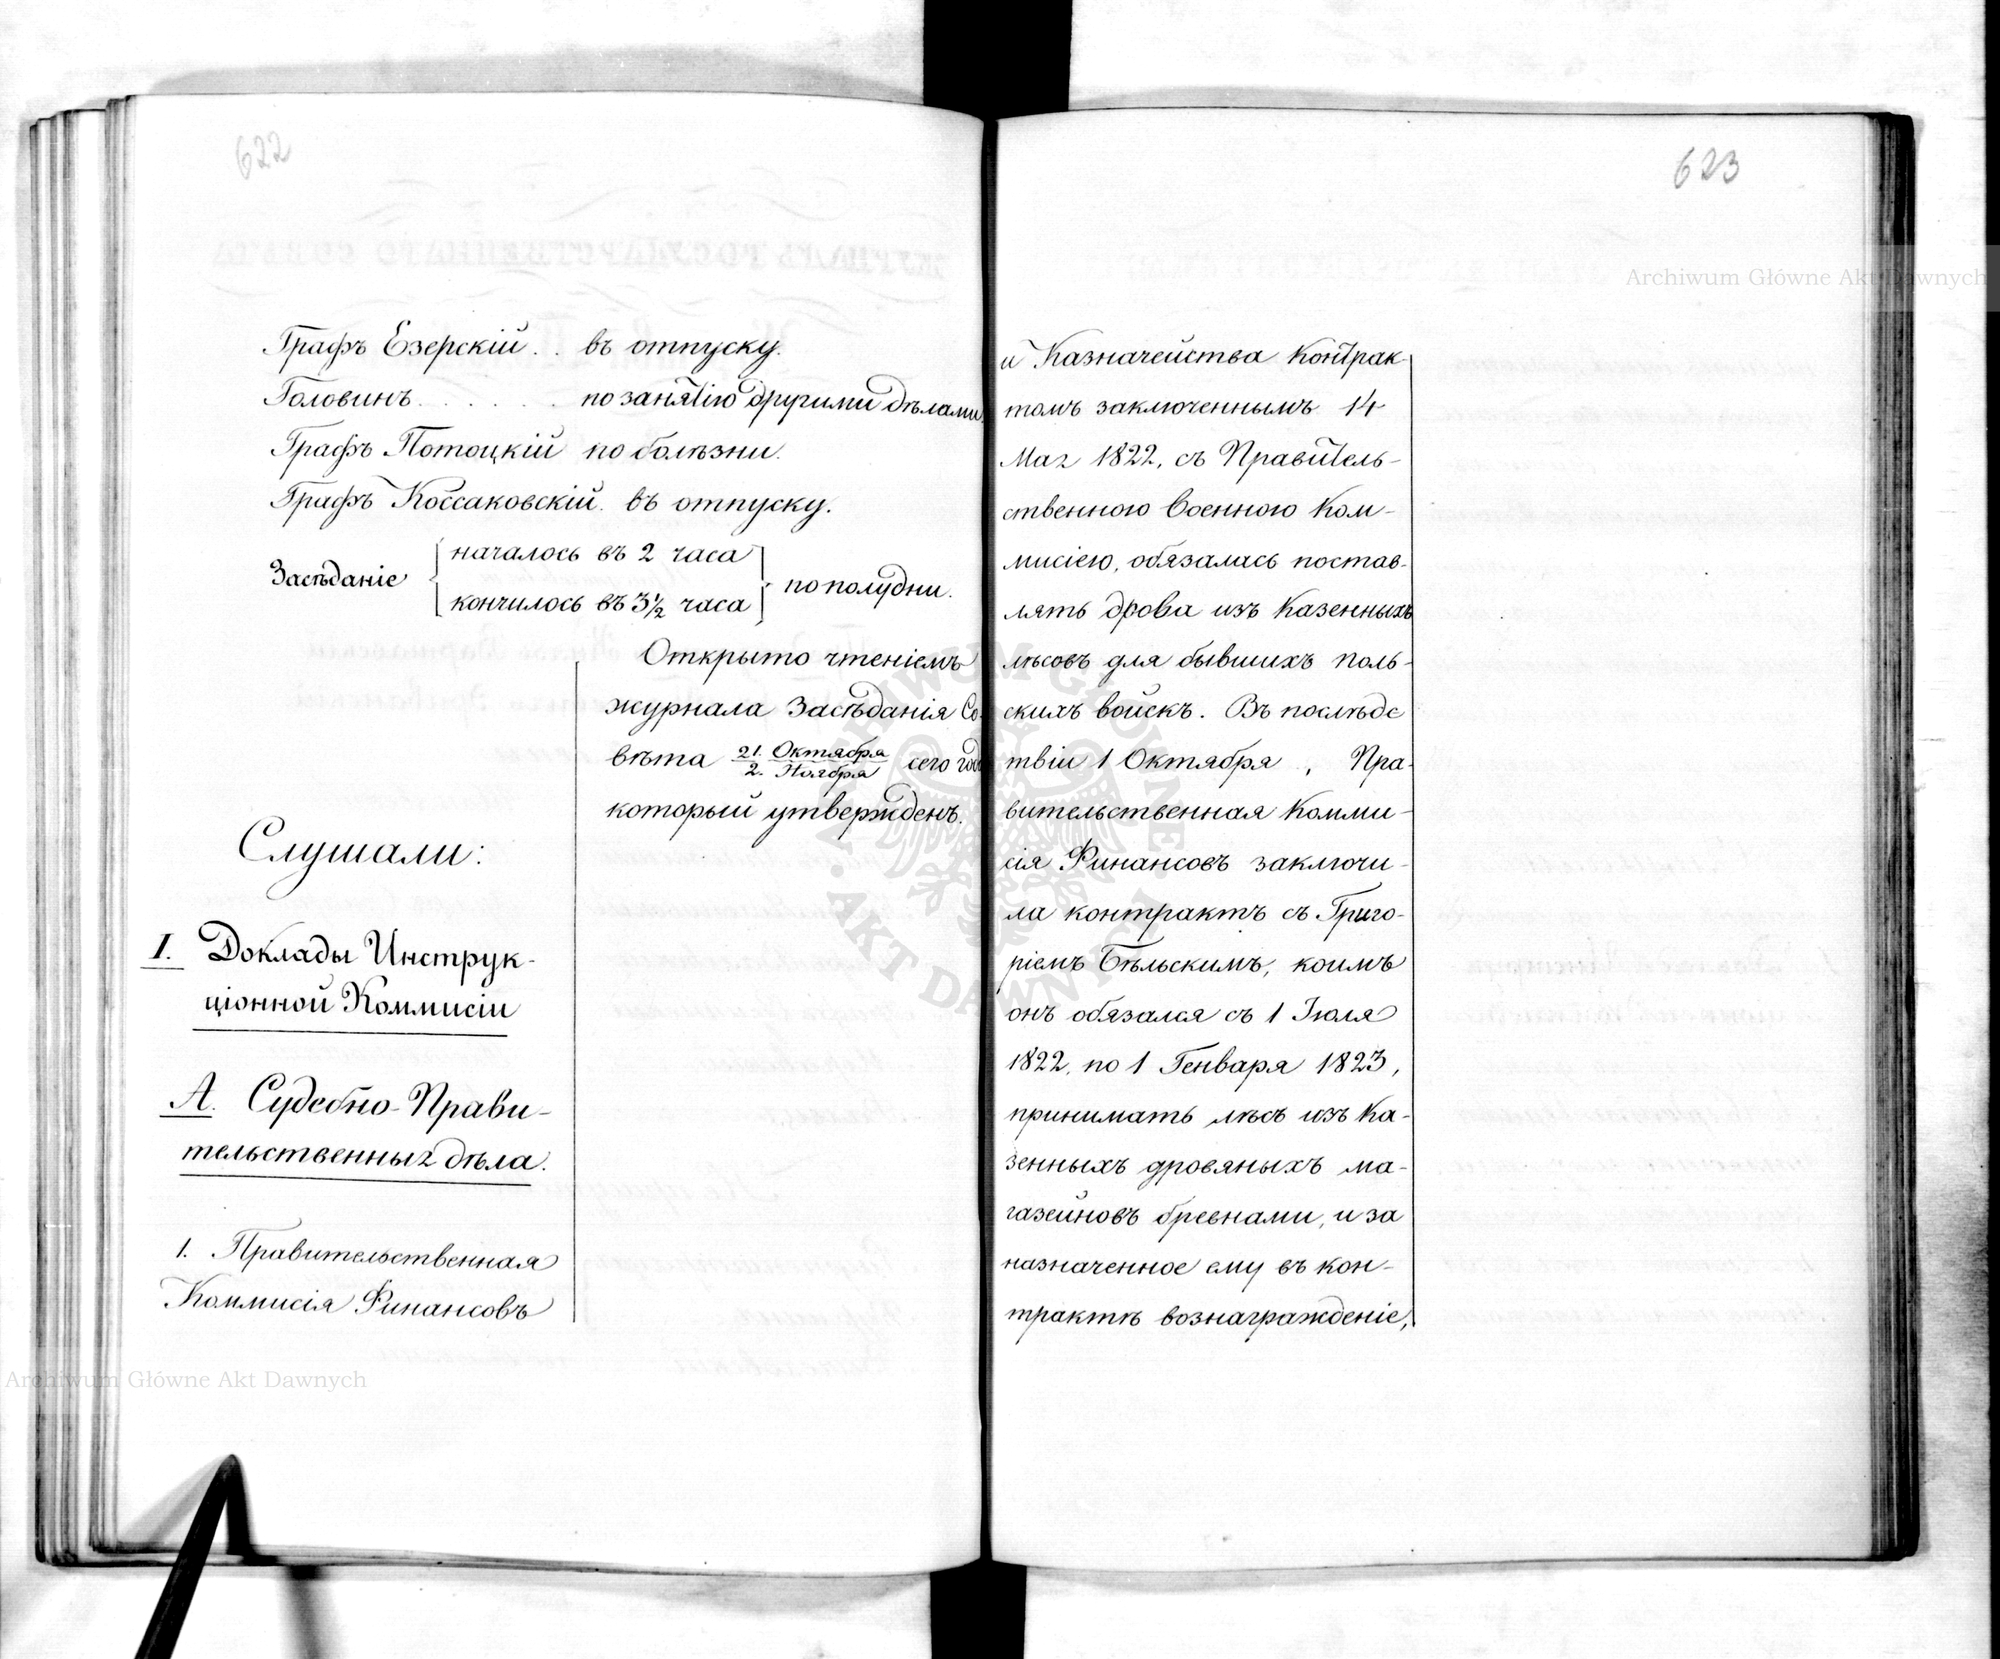 622
Графъ Езерскій . . въ отпуску.
Головинъ . . . . . . по занятію другими дѣлами.
Графъ Потоцкій по болѣзни.
Графъ Коссаковскій. въ отпуску.
Засѣданіе
началось въ 2 часа
кончилось въ 3½ часа
по полудни.
Открыто чтеніемъ
журнала Засѣданія Со-
вѣта 21. Октября / 2. Ноября сего года
который утвержденъ.
Слушали:
I. Доклады Инструк-
ціонной Коммисіи
А. Судебно-Прави-
тельственныя дѣла.
1. Правительственная
Коммисія Финансовъ
623
и Казначейства контрак
томъ заключеннымъ 14
Мая 1822, съ Правитель-
ственною Военною Ком-
мисіею, обязалась постав-
лять дрова изъ казенныхъ
лѣсовъ для бывшихъ поль-
скихъ войскъ. Въ послѣдс
твіи 1 Октября , Пра-
вительственная Комми-
сія Финансовъ заключи-
ла контрактъ съ Григо-
ріемъ Бѣльскимъ, коимъ
онъ обязался съ 1 Іюля
1822, по 1 Генваря 1823,
принимать лѣсъ изъ ка-
зенныхъ дровяныхъ ма-
газейновъ бревнами, и за
назначенное ему въ кон-
трактѣ вознагражденіе,
Archiwum Główne Akt Dawnych
Archiwum Główne Akt Dawnych
ARCHIWUM GŁÓWNE AKT DAWNYCH